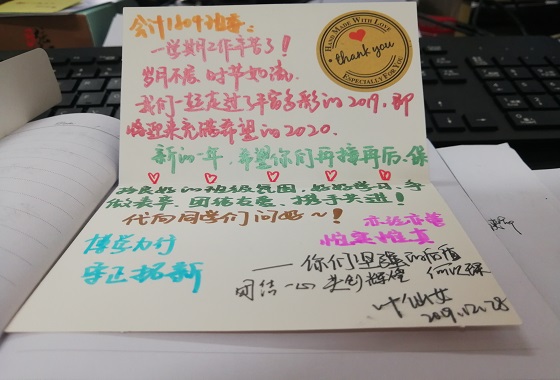 会计1804班委:
一学期工作辛苦了!
岁月不居,时节如流.
我们一起走过了丰富多彩的2019,即
将迎来充满希望的2020.
新的一年,希望你们再接再后,保
持良好的班级氛围,好好学习,争
做表率、团结友爱、携手共进!
代向同学们问好~!
亦张亦弛
惟实惟真
博学力行
守正拓新
——你们坚强的后盾
团结一心 共创辉煌
叶仙女
2019.12.28
HAND MADE WITH LOVE
thank you
ESPECIALLY FOR YOU